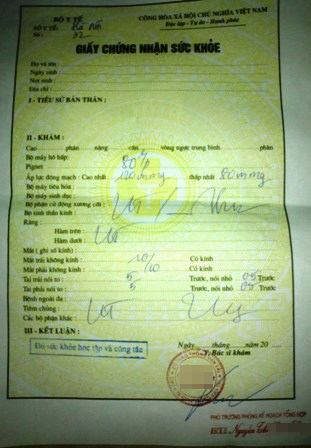 BỘ Y TẾ
CỘNG HÒA XÃ HỘI CHỦ NGHĨA VIỆT NAM
Độc lập - Tự do - Hạnh phúc
Số : 32
GIẤY CHỨNG NHẬN SỨC KHỎE
Họ và tên :
Ngày sinh :
Nơi sinh :
Địa chỉ :
I - TIỂU SỬ BẢN THÂN :
II - KHÁM :
Cao phân nặng cân vòng ngực trung bình phân
Bộ máy hô hấp:
Pignet
Áp lực động mạch : Cao nhất 120 mmg thấp nhất 80 mmg
Bộ máy tiêu hóa :
Bộ máy sinh dục :
Bộ phận cử động xương cốt :
Bộ thần kinh :
Răng :
Hàm trên :
Hàm dưới :
Mắt ( ghi số kính) :
Mắt trái không kính : 10/10 Có kính
Mắt phải không kính : 10/10 Có kính
Tai trái nói to : 5 Trước, nói nhỏ 05 Trước
Tai phải nói to : 5 Trước, nói nhỏ 05 Trước
Bệnh ngoài da :
Tiêm chủng :
Các bộ phận khác :
III - KẾT LUẬN :
Đủ sức khỏe học tập và công tác
Ngày tháng năm 20
Y. Bác sĩ khám
PHÓ TRƯỞNG PHÒNG KẾ HOẠCH TỔNG HỢP
Nguyễn Thị